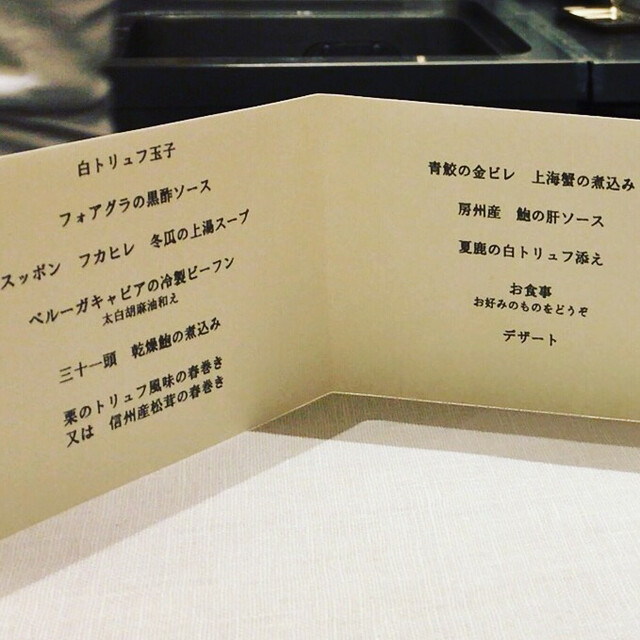 白トリュフ玉子
フォアグラの黒酢ソース
スッポン　フカヒレ　冬瓜の上湯スープ
ベルーガキャビアの冷製ビーフン
太白胡麻油和え
三十一頭　乾燥鮑の煮込み
栗のトリュフ風味の春巻き
又は　信州産松茸の春巻き
青鮫の金ビレ　上海蟹の煮込み
房州産　鮑の肝ソース
夏鹿の白トリュフ添え
お食事
お好みのものをどうぞ
デザート